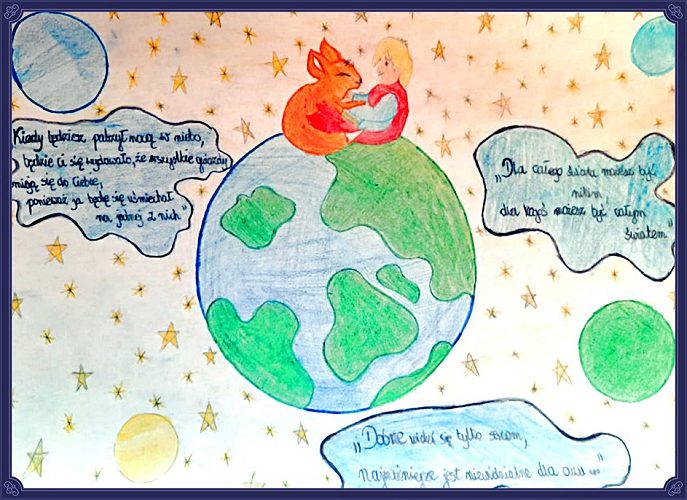 Kiedy będziesz patrzył nocą w niebo,
będzie Ci się wydawało, że wszystkie gwiazdy
śmieją się do Ciebie,
ponieważ ja będę się uśmiechał
na jednej z nich"
„Dla całego świata możesz być
nikim,
dla kogoś możesz być całym
światem"
„Dobrze widzi się tylko sercem,
najważniejsze jest niewidzialne dla oczu"